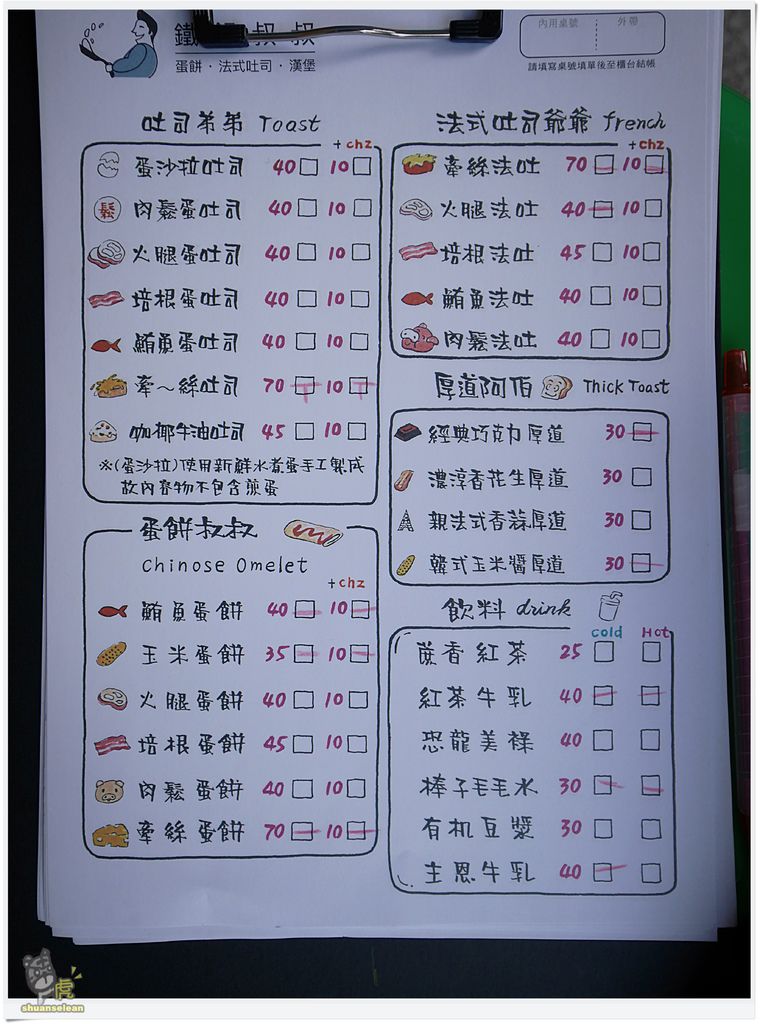 鐵 叔 叔
蛋餅．法式吐司．漢堡
內用桌號 外帶
請填寫桌號填單後至櫃台結帳
吐司弟弟 Toast
+chz
蛋沙拉吐司 40 10
鬆 肉鬆蛋吐司 40 10
火腿蛋吐司 40 10
培根蛋吐司 40 10
鮪魚蛋吐司 40 10
牽～絲吐司 70 10
咖椰牛油吐司 45 10
※(蛋沙拉)使用新鮮水煮蛋手工製成
故內容物不包含煎蛋
蛋餅叔叔
Chinose Omelet
+chz
鮪魚蛋餅 40 10
玉米蛋餅 35 10
火腿蛋餅 40 10
培根蛋餅 45 10
肉鬆蛋餅 40 10
牽絲蛋餅 70 10
法式吐司爺爺 french
+chz
牽絲法吐 70 10
火腿法吐 40 10
培根法吐 45 10
鮪魚法吐 40 10
肉鬆法吐 40 10
厚道阿伯 Thick Toast
經典巧克力厚道 30
濃淳香花生厚道 30
親法式香蒜厚道 30
韓式玉米醬厚道 30
飲料 drink
cold Hot
蔗香紅茶 25
紅茶牛乳 40
恐龍美祿 40
棒子毛毛水 30
有机豆漿 30
主恩牛乳 40
虎
shuanselean